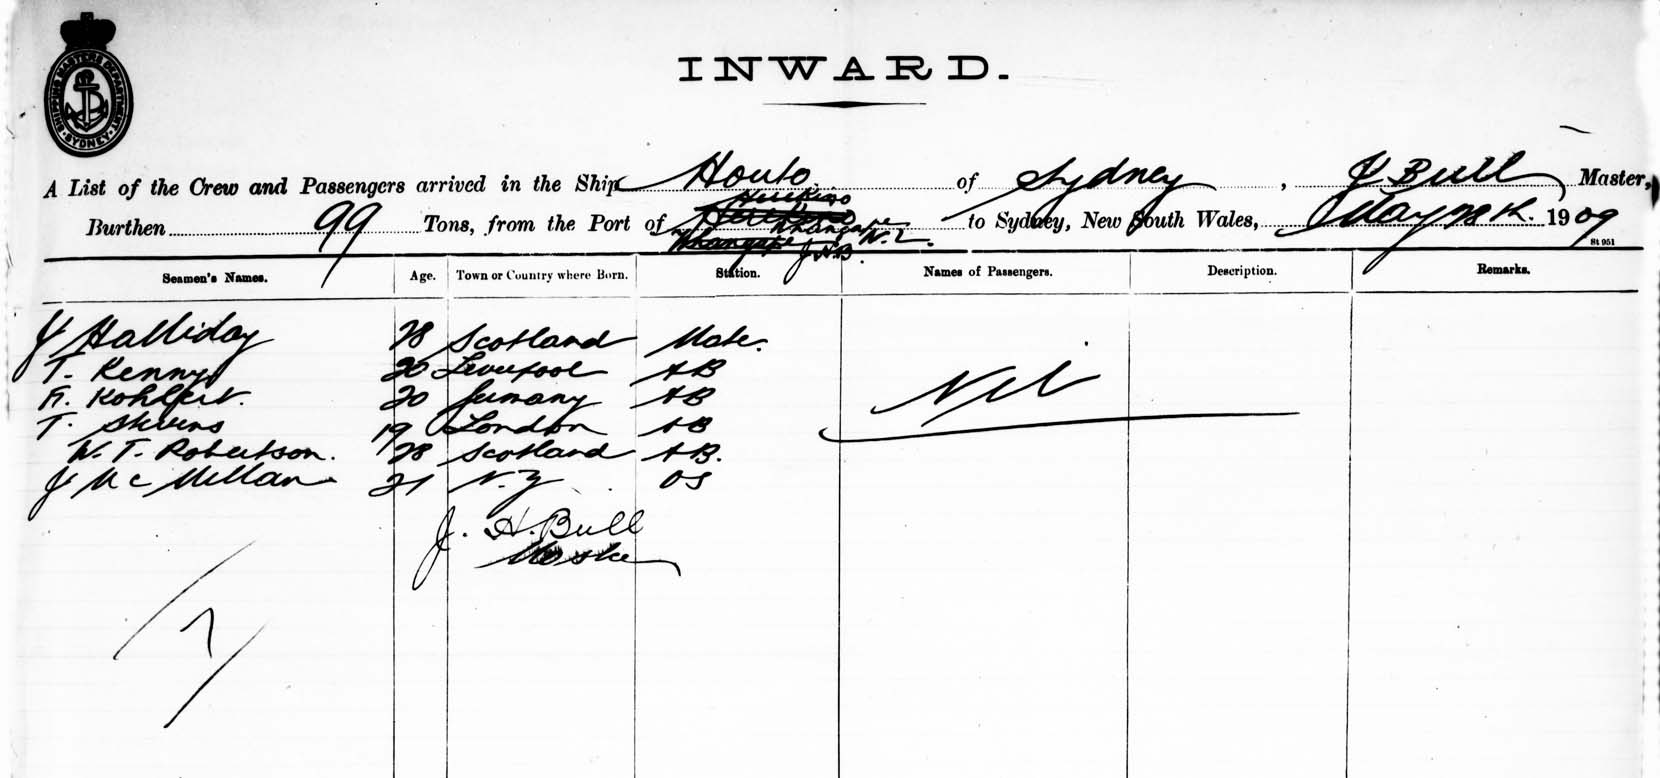 SHIPPING MASTERS DEPARTMENT
SYDNEY
INWARD.
A List of the Crew and Passengers arrived in the Ship Houto of Sydney, J Bull Master,
Burthen 99 Tons, from the Port of Whangape N.Z. to Sydney, New South Wales, May 28th. 1909
J.H.B.
St 951
Seamen's Names. Age. Town or Country where Born. Station. Names of Passengers. Description. Remarks.
J Halliday 28 Scotland Mate. Nil
T. Kenny 20 Liverpool AB
Kohlert. 20 Germany AB
T. Stevens 19 London AB
W. T. Robertson. 28 Scotland AB.
J McMillan 21 N.Z OS
J. H. Bull
Master
7